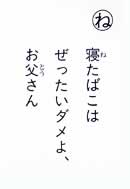 ね
寝たばこは
ぜったいダメよ、
お父さん